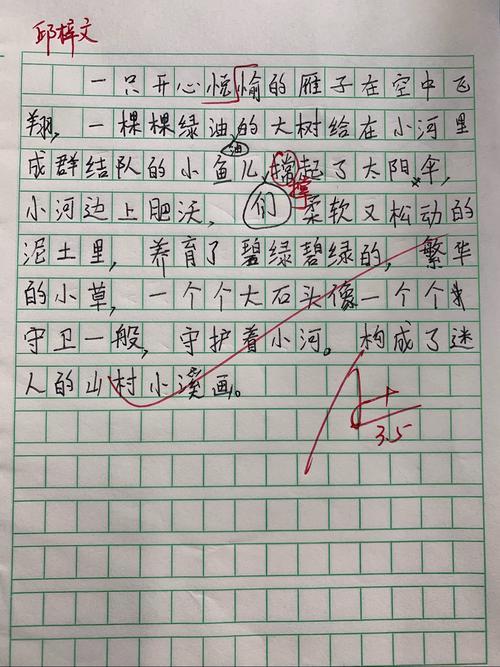 邱梓文
一只开心悦愉的雁子在空中飞
翔，一棵棵绿油的大树给在小河里
油
成群结队的小鱼儿撑起了太阳伞，
撑
小河边上肥沃，们柔软又松动的
泥土里，养育了碧绿碧绿的，繁华
的小草，一个个大石头像一个个
守卫一般，守护着小河。构成了迷
人的山村小溪画。
A+
3.5